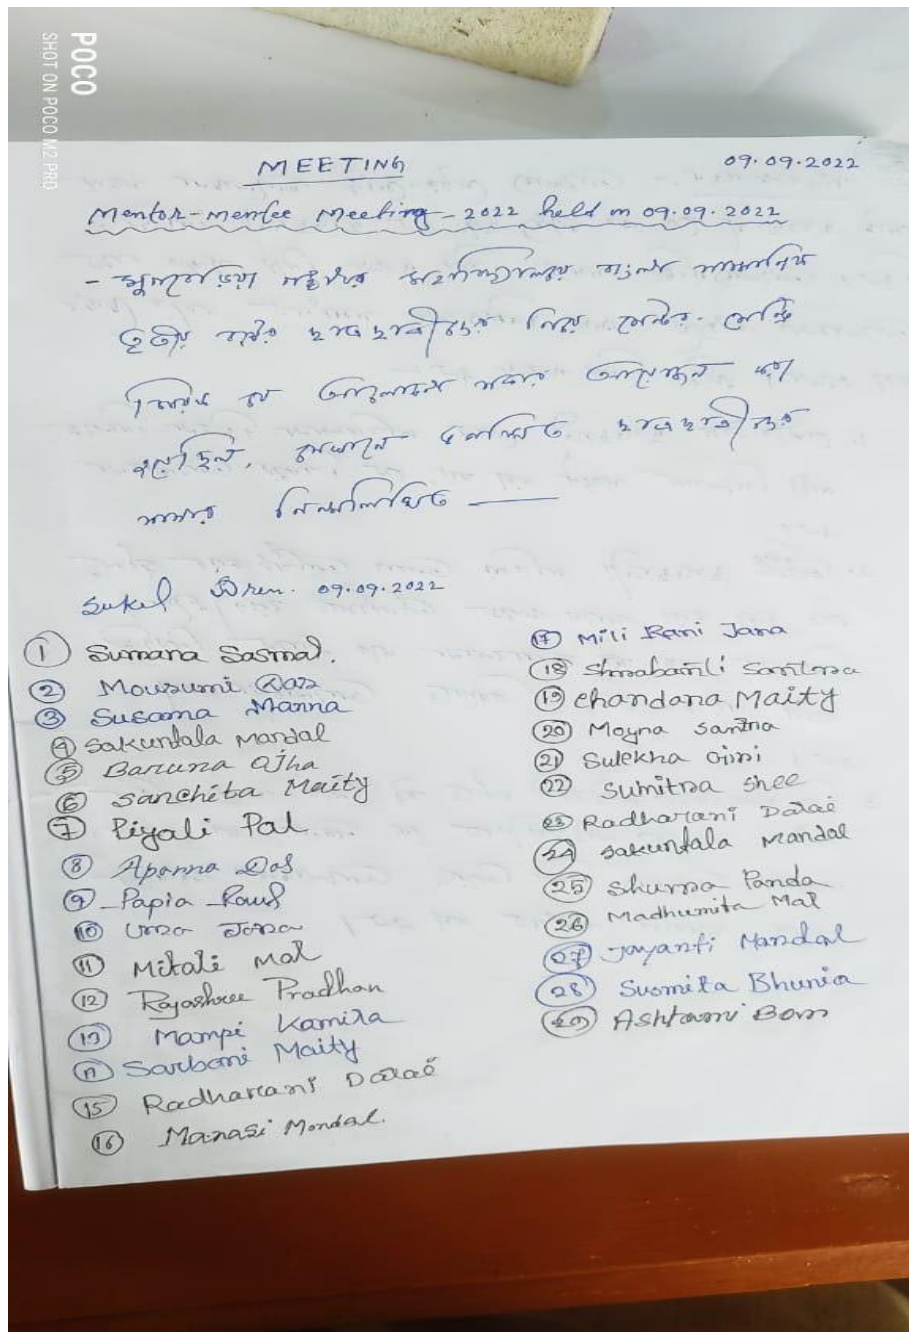 POCO
SHOT ON POCO M2 PRO
MEETING
09.09.2022
Mentor-Mentee Meeting-2022 held on 09.09.2022
- মহাবিদ্যালয়ের বাংলা সাম্মানিক
তৃতীয় বর্ষের ছাত্রছাত্রীদের নিয়ে মেন্টর-মেন্টি
আলোচনা সভার আয়োজন করা
হয়েছিল, সেখানে উপস্থিত ছাত্রছাত্রীদের
নিম্নলিখিত —
09.09.2022
1 Sumana Sasmal.
2 Mousumi Das
3 Susama Manna
4 Sakuntala Mandal
5 Baruna Ojha
6 Sanchita Maity
7 Piyali Pal
8 Aparna Das
9 Papia
10 Uma Jana
11 Mitali Mal
12 Rajashree Pradhan
13 Mampi Kamila
Sarbani Maity
15 Radharani Dalai
16 Manasi Mondal.
17 Mili Rani Jana
18 Santra
19 Chandana Maity
20 Moyna Santra
21 Sulekha Giri
22 Sumitra Shee
23 Radharani Dalai
24 Sakuntala Mandal
25 Panda
26 Madhumita Mal
27 Jayanti Mandal
28 Susmita Bhunia
29 Ashtami Bera